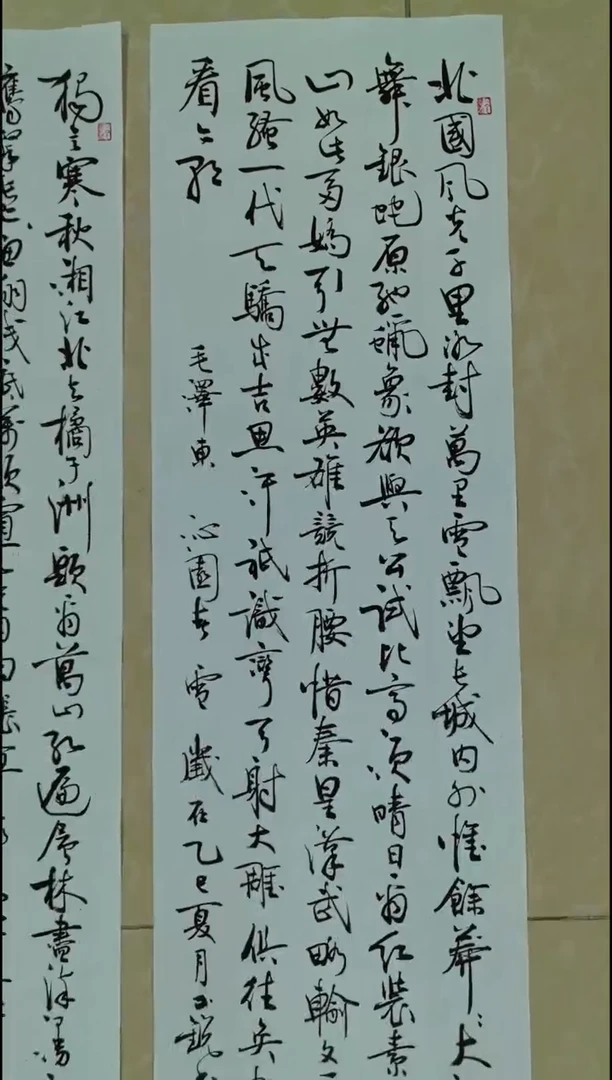 北國風光千里冰封萬里雪飄望長城内外惟餘莽々大
舞銀蛇原馳蠟象欲與天公試比高須晴日看紅裝素
山如此多嬌引無數英雄競折腰惜秦皇漢武略輸文
風騷一代天驕成吉思汗祇識彎弓射大雕俱往矣
看今朝
毛澤東 沁園春 雪 歲在乙巳夏月
獨立寒秋湘江北去橘子洲頭看萬山紅遍層林盡染漫
鷹擊長空魚翔淺底萬